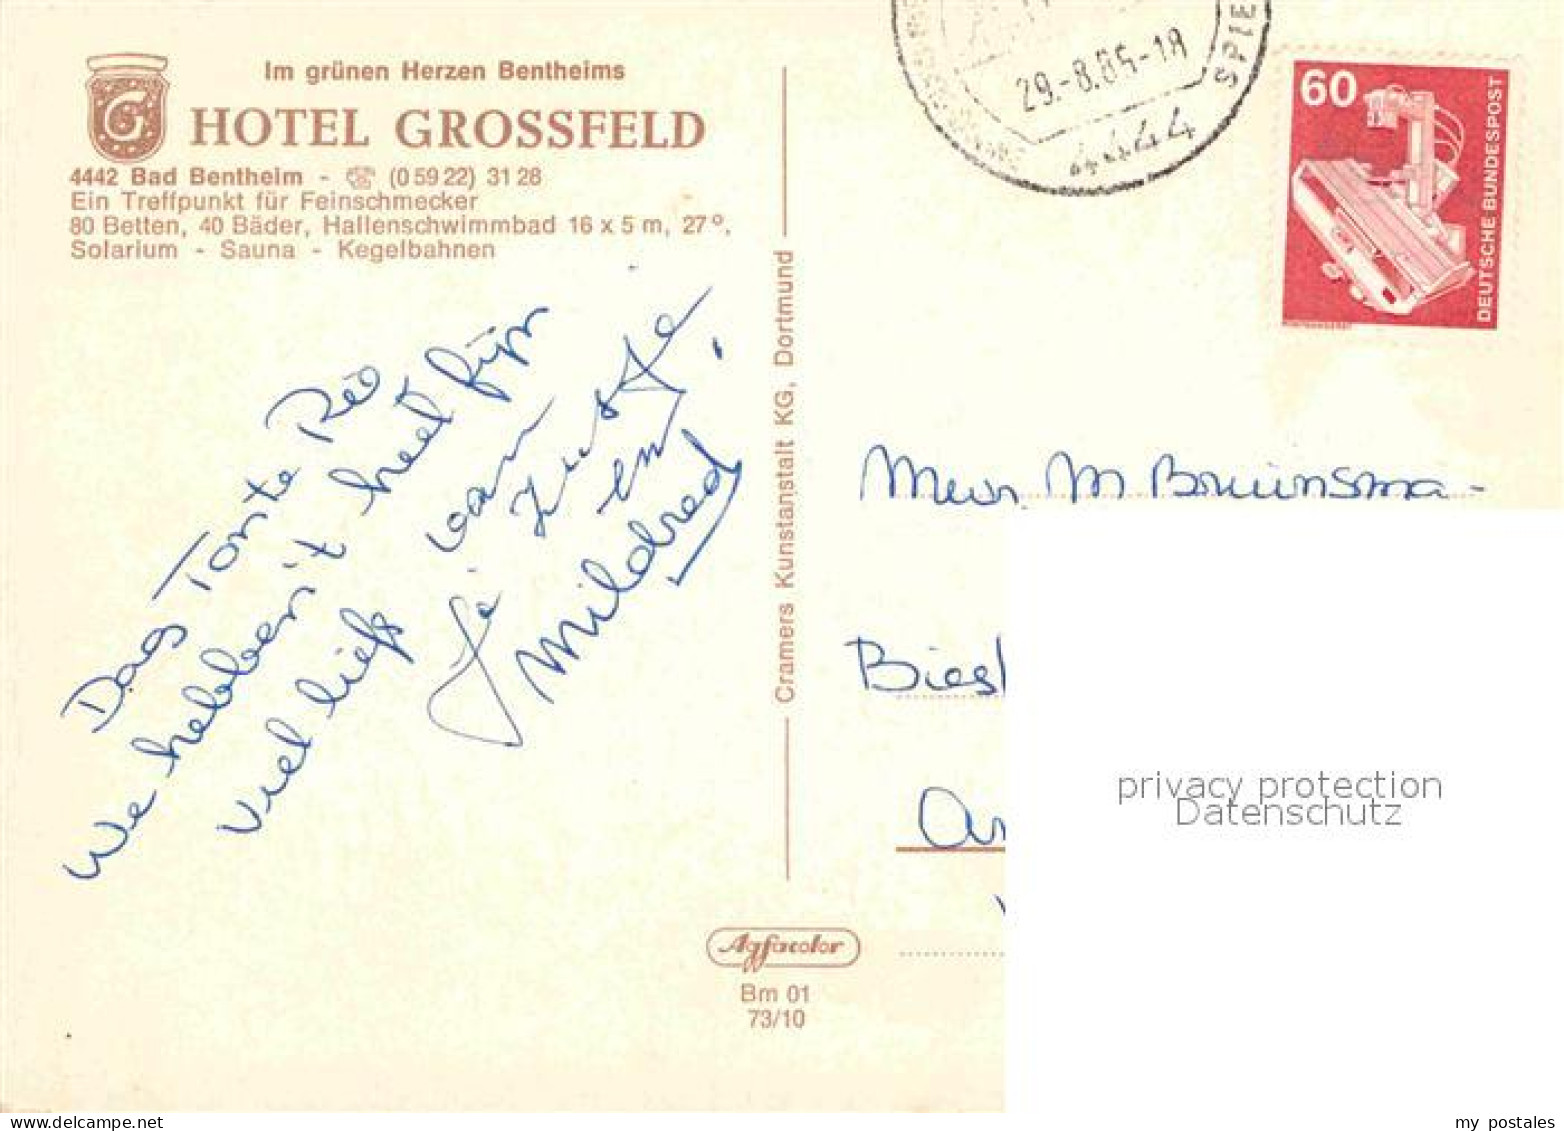 Im grünen Herzen Bentheims
G
HOTEL GROSSFELD
4442 Bad Bentheim - ☏ (0 59 22) 31 28
Ein Treffpunkt für Feinschmecker
80 Betten, 40 Bäder, Hallenschwimmbad 16 x 5 m, 27°,
Solarium - Sauna - Kegelbahnen
Dag Tante Ré
We hebben't heel fijn
Veel liefs van
Je zuster
en
Mildred
Cramers Kunstanstalt KG, Dortmund
Agfacolor
Bm 01
73/10
29.-8.85-18
4444
60
DEUTSCHE BUNDESPOST
Mevr. M Bruinsma-
privacy protection
Datenschutz
my postales